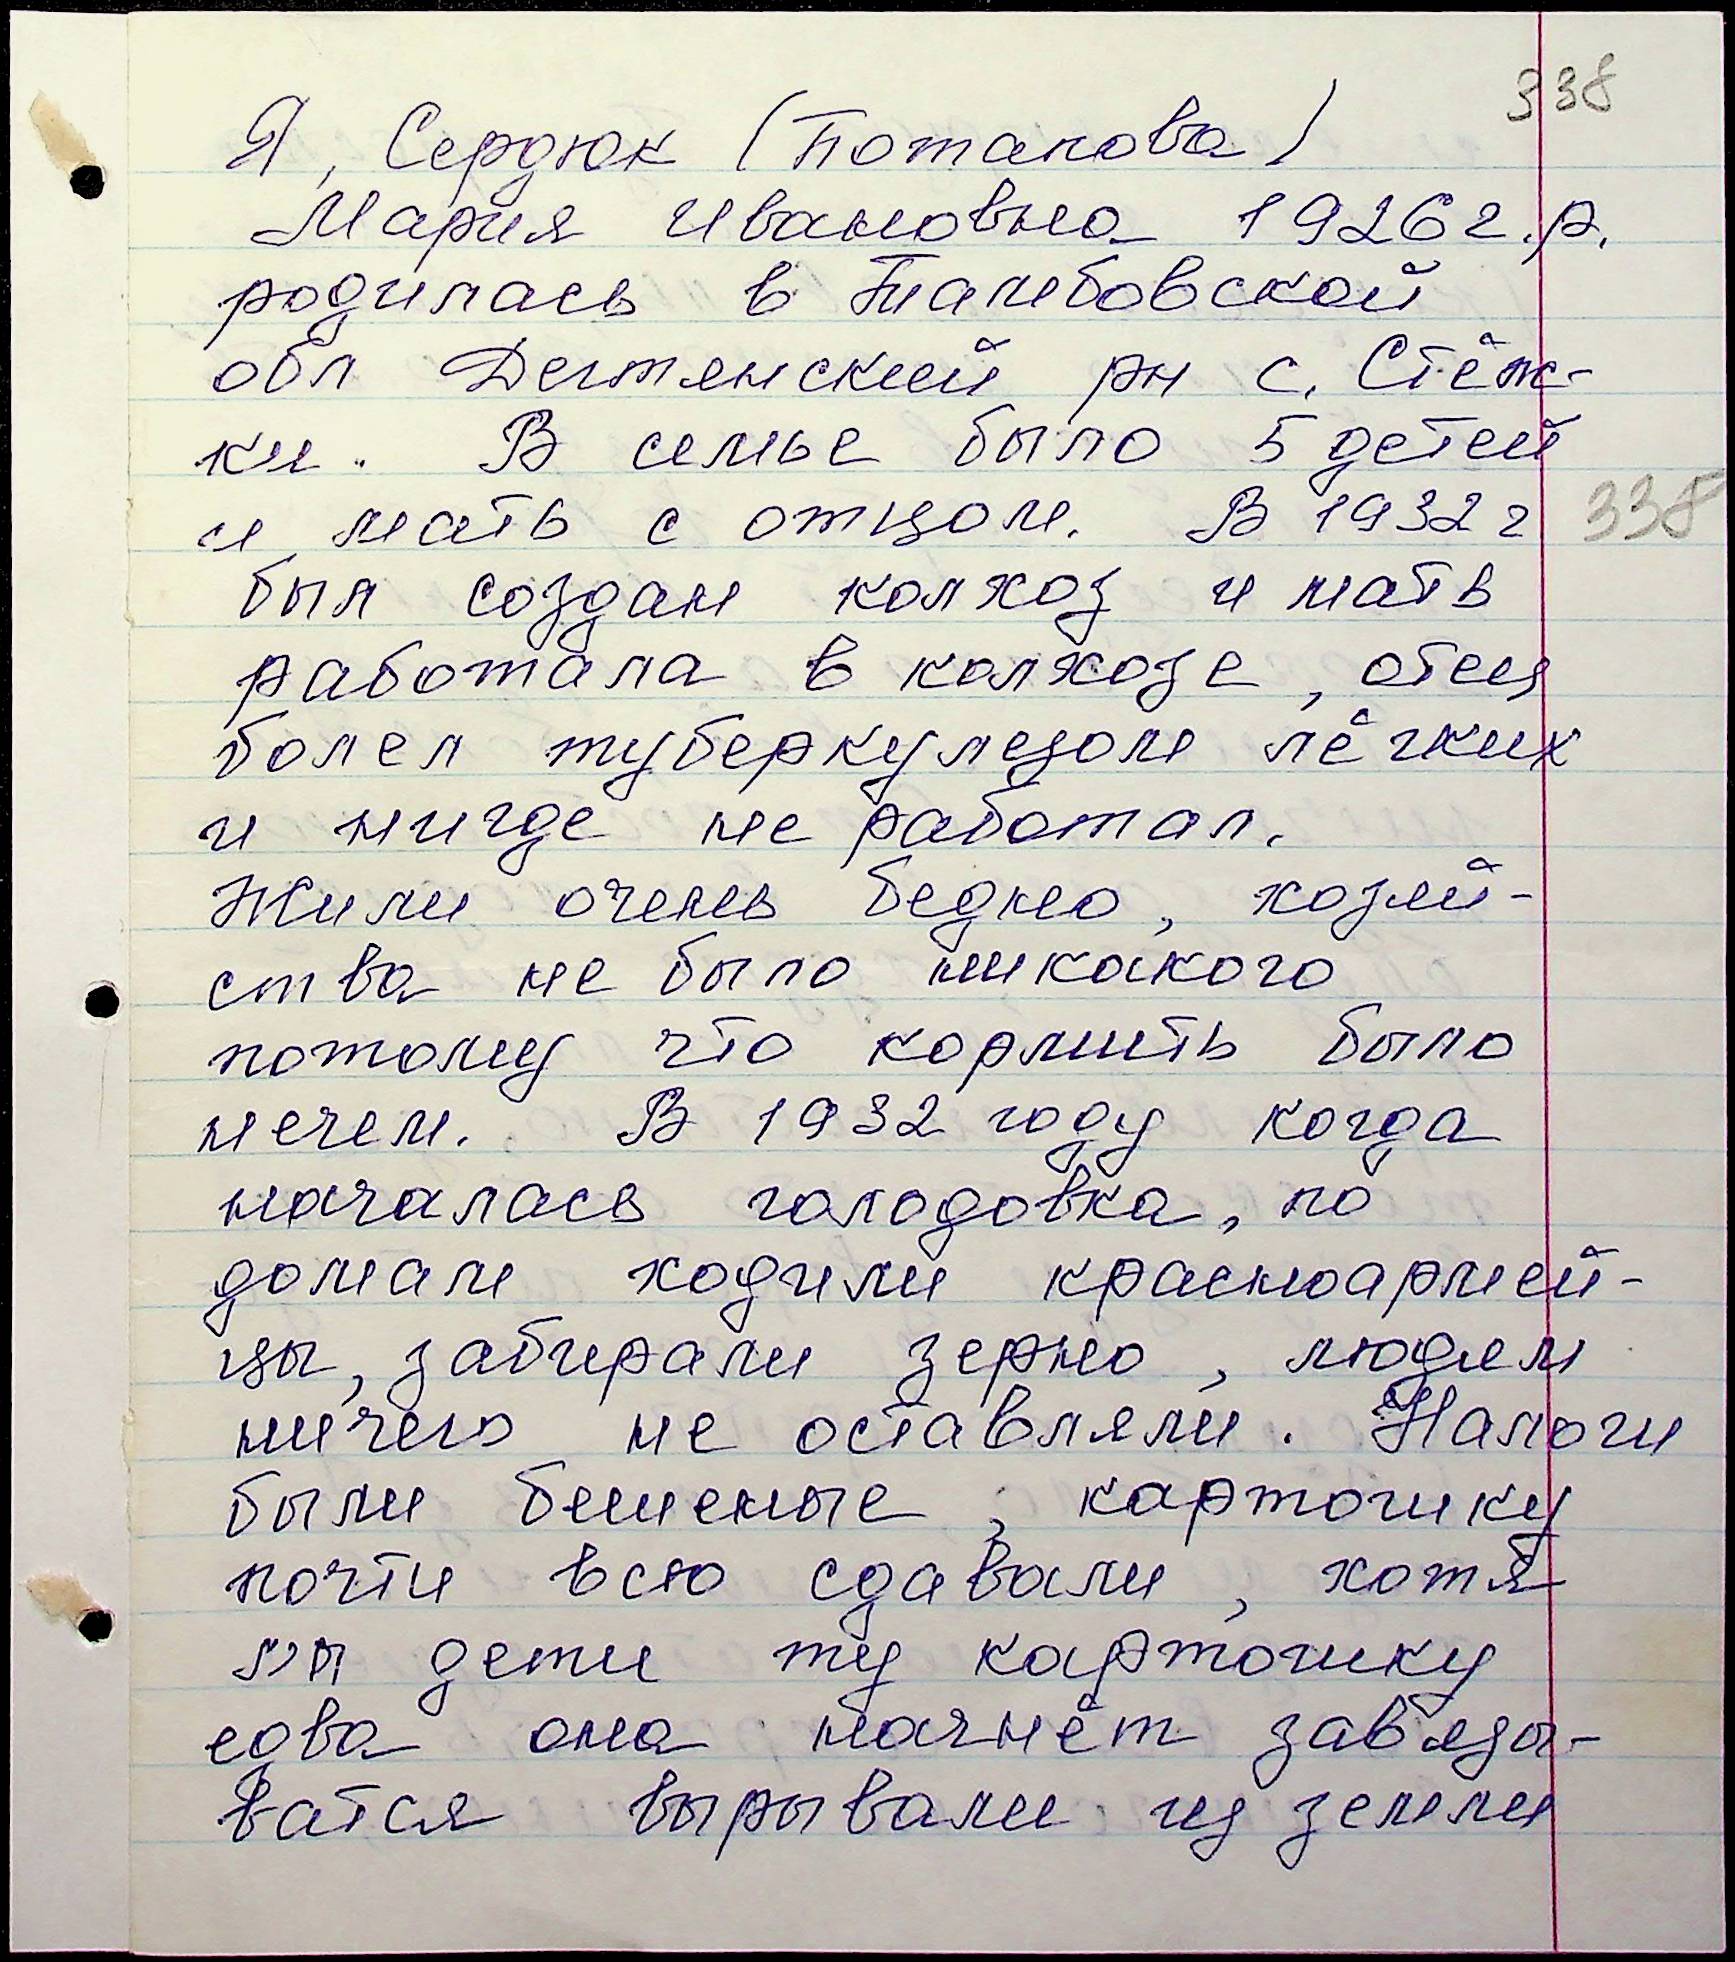 338
Я, Сердюк (Потапова)
Мария Ивановна 1926 г.р.
родилась в Тамбовской
обл Дегтянский рн с. Стёж-
ки. В семье было 5 детей
и мать с отцом. В 1932 г
338
был создан колхоз и мать
работала в колхозе, отец
болел туберкулезом лёгких
и нигде не работал.
Жили очень бедно, хозяй-
ства не было никакого
потому что кормить было
нечем. В 1932 году когда
началась голодовка, по
домам ходили красноармей-
цы, забирали зерно, людям
ничего не оставляли. Налоги
были бешеные, картошку
почти всю сдавали, хотя
мы дети ту картошку
едва она начнёт завязы-
ватся вырывали из земли